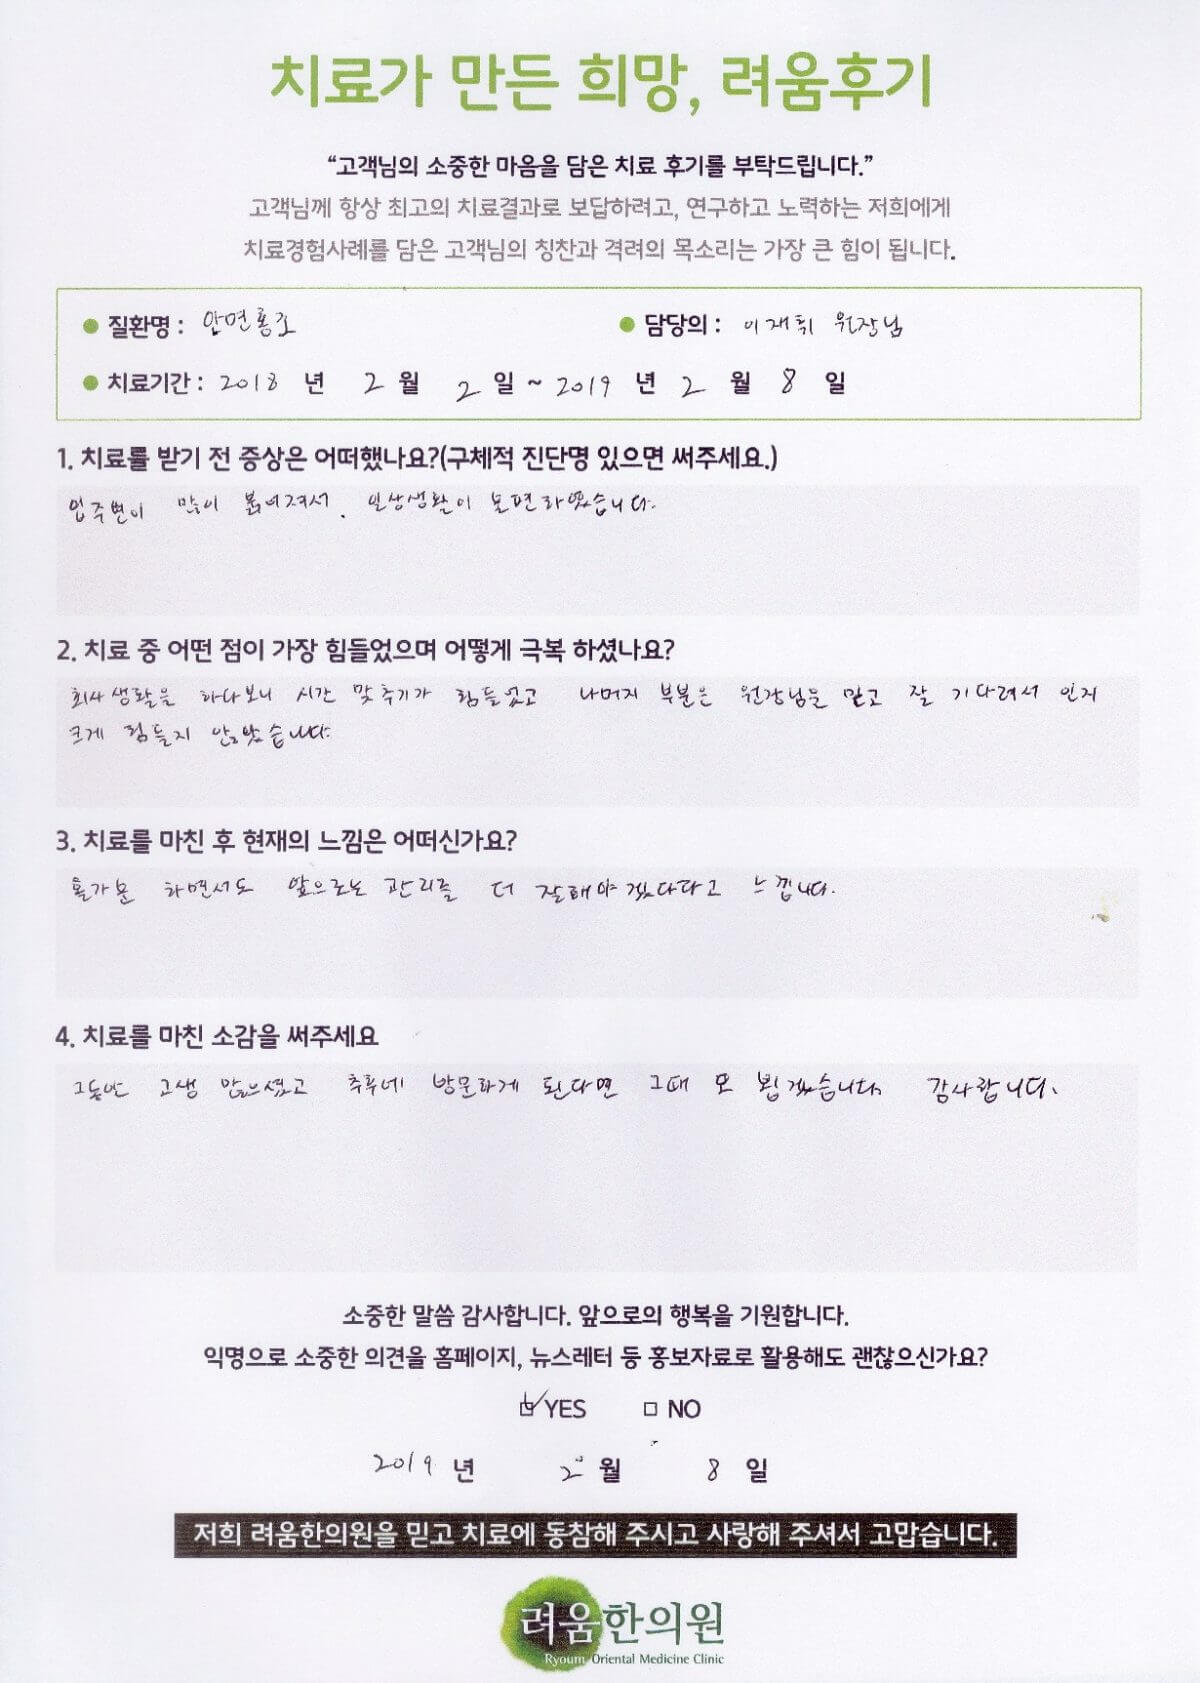 치료가 만든 희망, 려움후기
“고객님의 소중한 마음을 담은 치료 후기를 부탁드립니다.”
고객님께 항상 최고의 치료결과로 보답하려고, 연구하고 노력하는 저희에게
치료경험사례를 담은 고객님의 칭찬과 격려의 목소리는 가장 큰 힘이 됩니다.
● 질환명 : 안면홍조 ● 담당의 : 이재휘 원장님
● 치료기간 : 2018 년 2 월 2 일 ~ 2019 년 2 월 8 일
1. 치료를 받기 전 증상은 어떠했나요?(구체적 진단명 있으면 써주세요.)
입주변이 많이 붉어져서. 일상생활이 불편하였습니다.
2. 치료 중 어떤 점이 가장 힘들었으며 어떻게 극복 하셨나요?
회사생활을 하다보니 시간 맞추기가 힘들었고 나머지 부분은 원장님을 믿고 잘 기다려서 인지
크게 힘들지 않았습니다.
3. 치료를 마친 후 현재의 느낌은 어떠신가요?
홀가분 하면서도 앞으로는 관리를 더 잘해야겠다라고 느낍니다.
4. 치료를 마친 소감을 써주세요
그동안 고생 많으셨고 추후에 방문하게 된다면 그때 또 뵙겠습니다. 감사합니다.
소중한 말씀 감사합니다. 앞으로의 행복을 기원합니다.
익명으로 소중한 의견을 홈페이지, 뉴스레터 등 홍보자료로 활용해도 괜찮으신가요?
☑ YES □ NO
2019 년 2 월 8 일
저희 려움한의원을 믿고 치료에 동참해 주시고 사랑해 주셔서 고맙습니다.
려움한의원
Ryoum Oriental Medicine Clinic